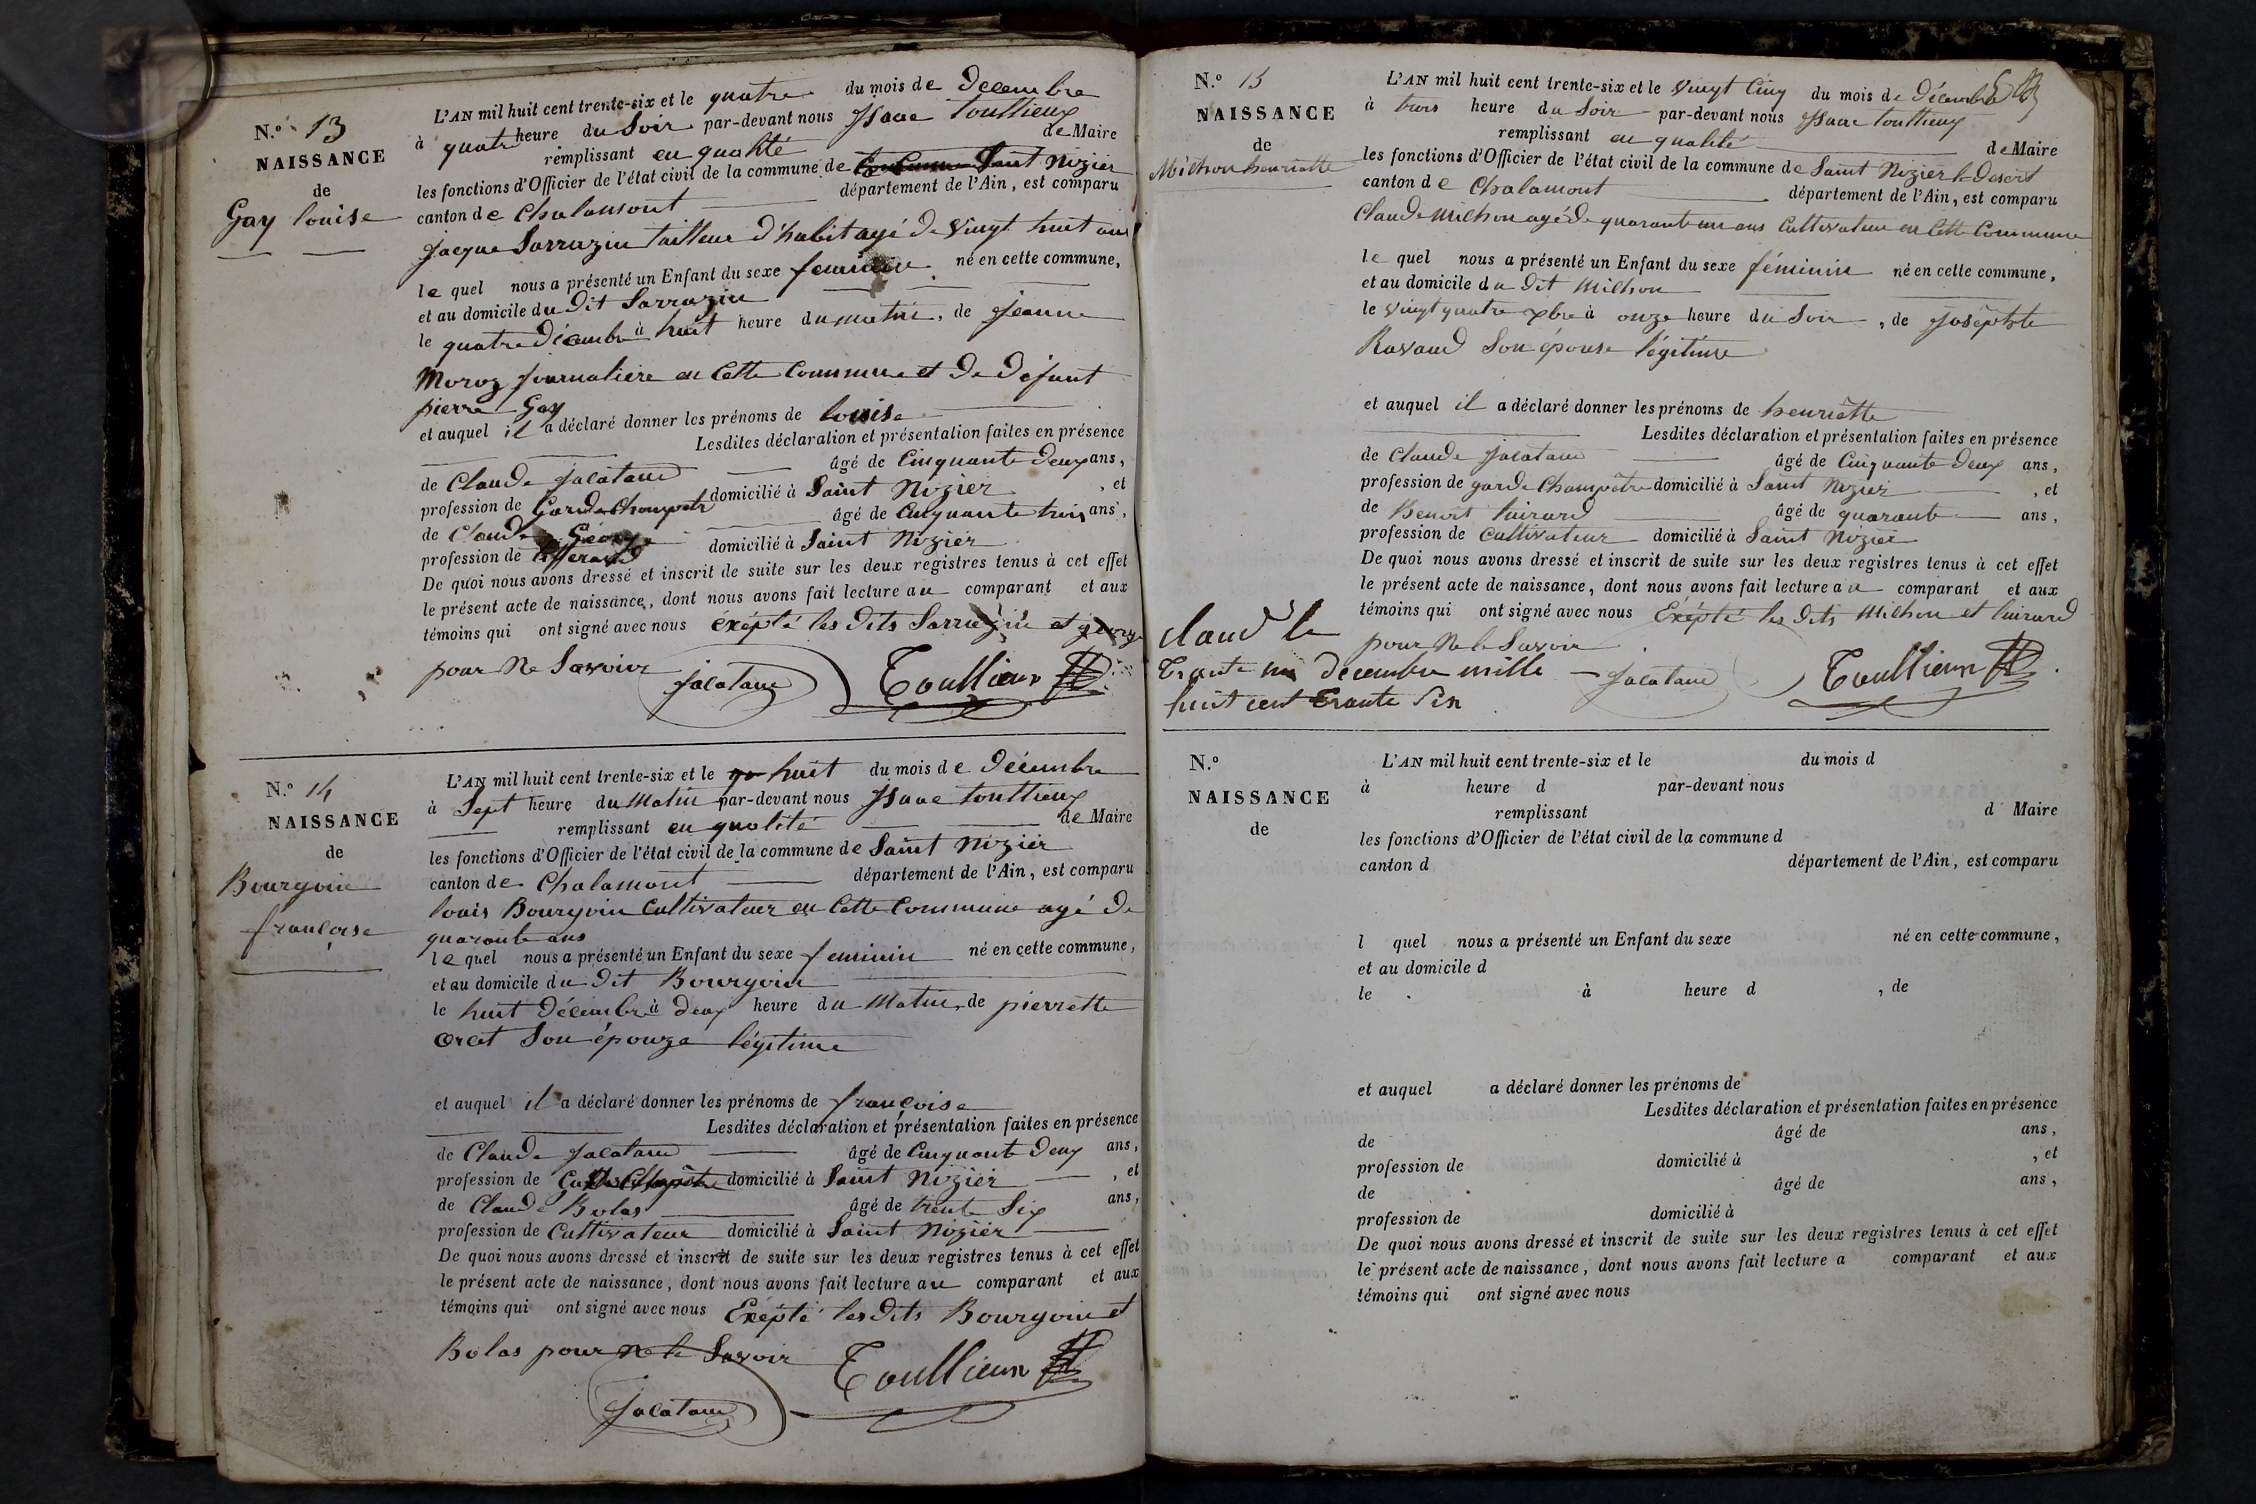 N.º 13
NAISSANCE
de
Gay louise
L'AN mil huit cent trente-six et le quatre du mois de Décembre
à quatre heure du Soir par-devant nous Isaac Toullieux
remplissant en qualité de Maire
les fonctions d'Officier de l'état civil de la commune de Saint Nizier
canton de Chalamont département de l'Ain, est comparu
jacque Sarrazin tailleur d'habit agé de Vingt huit ans
le quel nous a présenté un Enfant du sexe feminin né en cette commune,
et au domicile du dit Sarrazin
le quatre Décembre à huit heure du matin, de jeanne
Moroz journaliere en Cette Commune et De Défunt
pierre Gay
et auquel il a déclaré donner les prénoms de louise
Lesdites déclaration et présentation faites en présence
de Claude jacatam âgé de Cinquante Deux ans,
profession de Garde Champetre domicilié à Saint Nizier, et
de Claude George âgé de Cinquante trois ans,
profession de domicilié à Saint Nizier
De quoi nous avons dressé et inscrit de suite sur les deux registres tenus à cet effet
le présent acte de naissance, dont nous avons fait lecture au comparant et aux
témoins qui ont signé avec nous éxépté les dits Sarrazin et george
pour Ne Savoir
jacatam Toullieux
N.º 14
NAISSANCE
de
Bourgoin
francoise
L'AN mil huit cent trente-six et le huit du mois de Décembre
à Sept heure du Matin par-devant nous Isaac Toullieux
remplissant en qualité de Maire
les fonctions d'Officier de l'état civil de la commune de Saint Nizier
canton de Chalamont département de l'Ain, est comparu
louis Bourgoin Cultivateur en Cette Commune agé de
quarante ans
le quel nous a présenté un Enfant du sexe feminin né en cette commune,
et au domicile du Dit Bourgoin
le huit Décembre à Deux heure du Matin, de pierrette
Orcet Son épouze légitime
et auquel il a déclaré donner les prénoms de françoise
Lesdites déclaration et présentation faites en présence
de Claude jacatam âgé de Cinquante Deux ans,
profession de Garde Champêtre domicilié à Saint Nizier, et
de Claude Bolas âgé de trente Six ans,
profession de Cultivateur domicilié à Saint Nizier
De quoi nous avons dressé et inscrit de suite sur les deux registres tenus à cet effet
le présent acte de naissance, dont nous avons fait lecture au comparant et aux
témoins qui ont signé avec nous Exépté les dits Bourgoin et
Bolas pour Ne le Savoir
Toullieux
jacatam
N.º 15
NAISSANCE
de
Milhon henriette
L'AN mil huit cent trente-six et le Vingt Cinq du mois de Décembre
à trois heure du Soir par-devant nous Isaac Toullieux
remplissant en qualité de Maire
les fonctions d'Officier de l'état civil de la commune de Saint Nizier le Desert
canton de Chalamont département de l'Ain, est comparu
Claude Milhon agé de quarante un ans Cultivateur en Cette Commune
le quel nous a présenté un Enfant du sexe féminin né en cette commune,
et au domicile du dit Milhon
le Vingt quatre xbre à onze heure du Soir, de joséphte
Ravaud Son épouse légitime
et auquel il a déclaré donner les prénoms de henriètte
Lesdites déclaration et présentation faites en présence
de Claude jacatam âgé de Cinquante Deux ans,
profession de garde Champêtre domicilié à Saint Nizier, et
de Benoit âgé de quarante ans,
profession de Cultivateur domicilié à Saint Nizier
De quoi nous avons dressé et inscrit de suite sur les deux registres tenus à cet effet
le présent acte de naissance, dont nous avons fait lecture au comparant et aux
témoins qui ont signé avec nous Exépté les dits Milhon et
pour Ne le Savoir
claud le
Trante un decembre mille
huit cent Trante Sin
jacatam Toullieux
N.º
NAISSANCE
de
L'AN mil huit cent trente-six et le du mois d
à heure d par-devant nous
remplissant d Maire
les fonctions d'Officier de l'état civil de la commune d
canton d département de l'Ain, est comparu
l quel nous a présenté un Enfant du sexe né en cette commune,
et au domicile d
le à heure d , de
et auquel a déclaré donner les prénoms de
Lesdites déclaration et présentation faites en présence
de âgé de ans,
profession de domicilié à , et
de âgé de ans,
profession de domicilié à
De quoi nous avons dressé et inscrit de suite sur les deux registres tenus à cet effet
le présent acte de naissance, dont nous avons fait lecture a comparant et aux
témoins qui ont signé avec nous